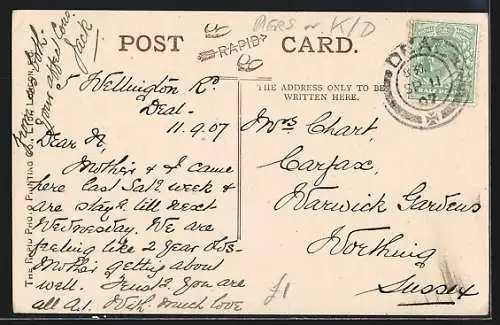 PIERS or K/D
POST CARD.
RAPID
THE ADDRESS ONLY TO BE
WRITTEN HERE.
THE RAPID PHOTO PRINTING CO., LTD., LONDON, E.C.
5 Wellington Rd
Deal.
11.9.07
Dear M,
Mother & I came
here last Satd. week &
are stayg till next
Wednesday. We are
feeling like 2 year olds-
Mother getting about
well. Trust you are
all A1. With much love
from both.
Your affec Cous.
Jack
DEAL
SP 11
07
Mrs Chart,
Carfax,
Warwick Gardens
Worthing
Sussex
£1